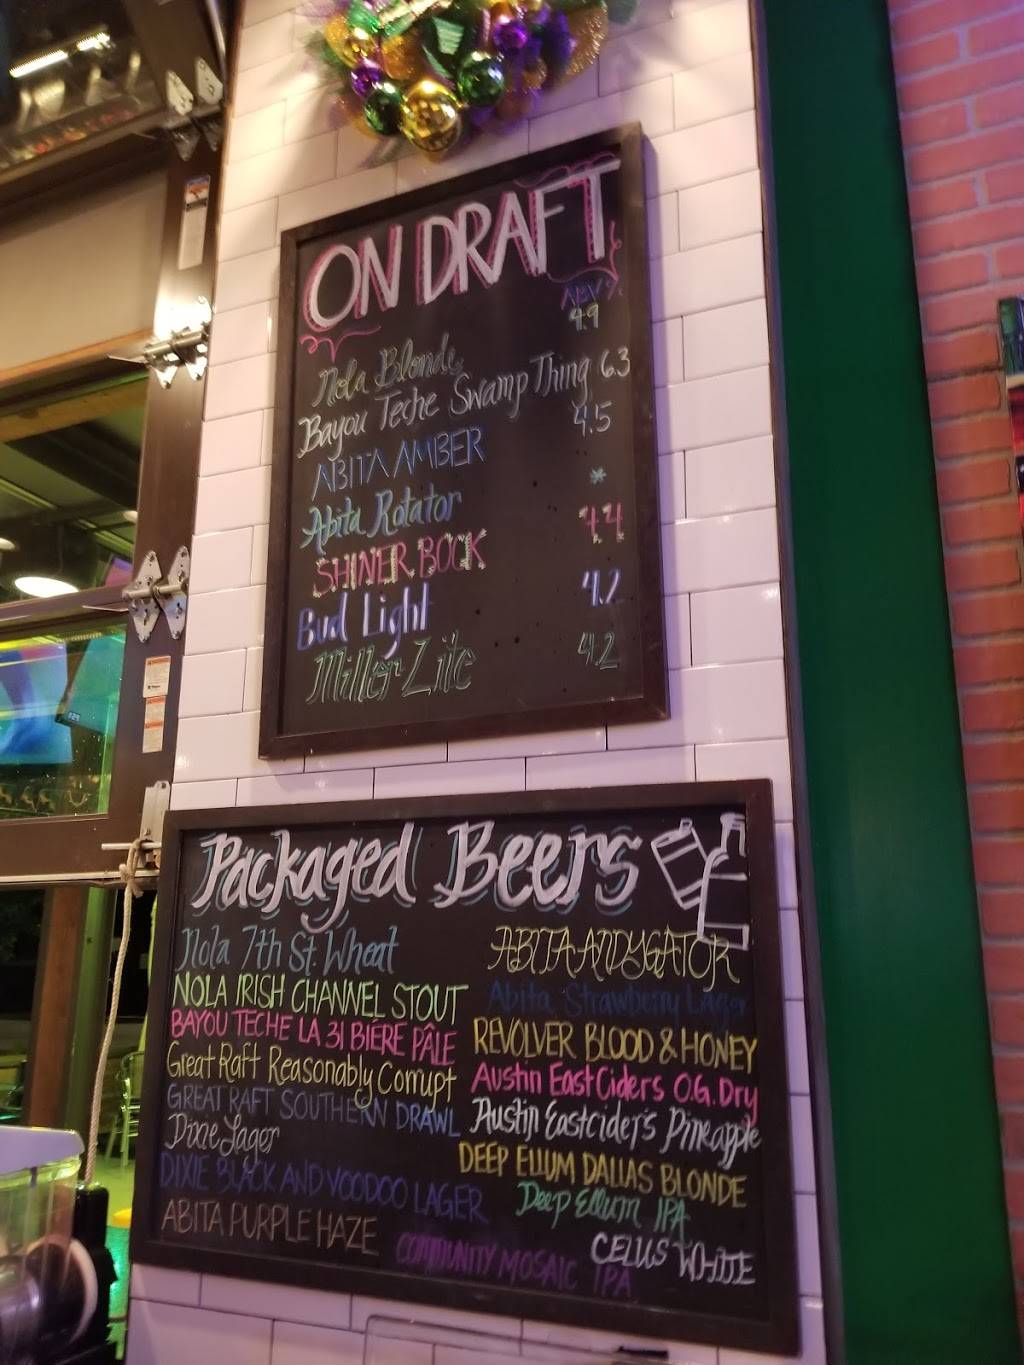 ON DRAFT
ABV %
Nola Blonde 4.9
Bayou Teche Swamp Thing 6.3
ABITA AMBER 4.5
Abita Rotator *
SHINER BOCK 4.4
Bud Light 4.2
Miller Lite 4.2
Packaged Beers
Nola 7th St. Wheat
NOLA IRISH CHANNEL STOUT
BAYOU TECHE LA 31 BIÉRE PÂLE
Great Raft Reasonably Corrupt
GREAT RAFT SOUTHERN DRAWL
Dixie Lager
DIXIE BLACK AND VOODOO LAGER
ABITA PURPLE HAZE
ABITA ANDYGATOR
Abita Strawberry Lager
REVOLVER BLOOD & HONEY
Austin EastCiders O.G. Dry
Austin Eastciders Pineapple
DEEP ELLUM DALLAS BLONDE
Deep Ellum IPA
CELLIS WHITE
COMMUNITY MOSAIC IPA